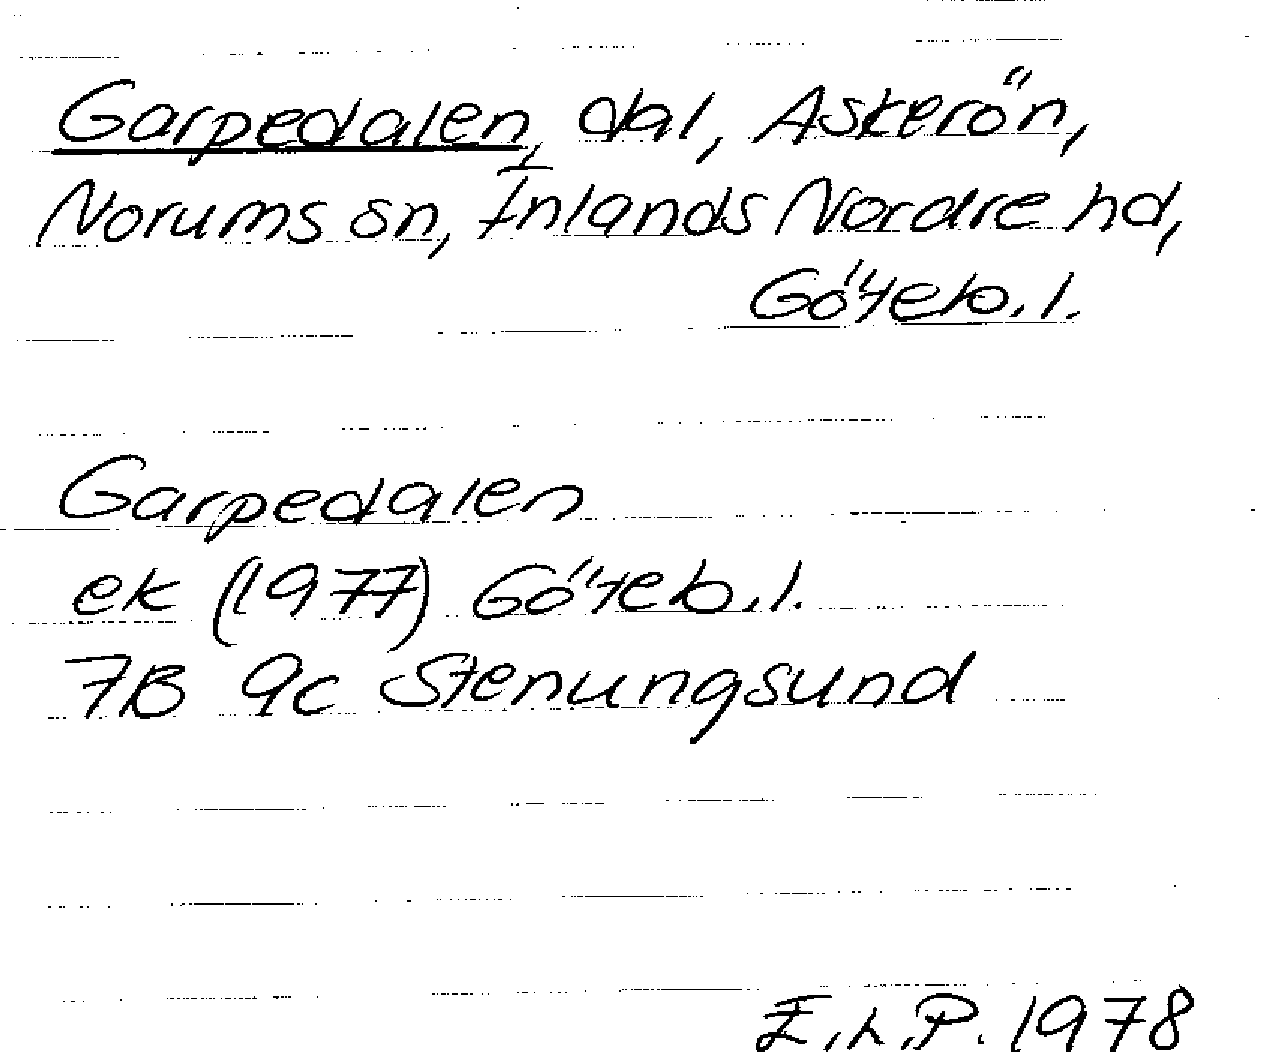 Garpedalen, dal, Askerön,
Norums sn, Inlands Nordre hd,
Göteb.l.
Garpedalen
ek (1977) Göteb.l.
7B 9c Stenungsund
E.L.P. 1978